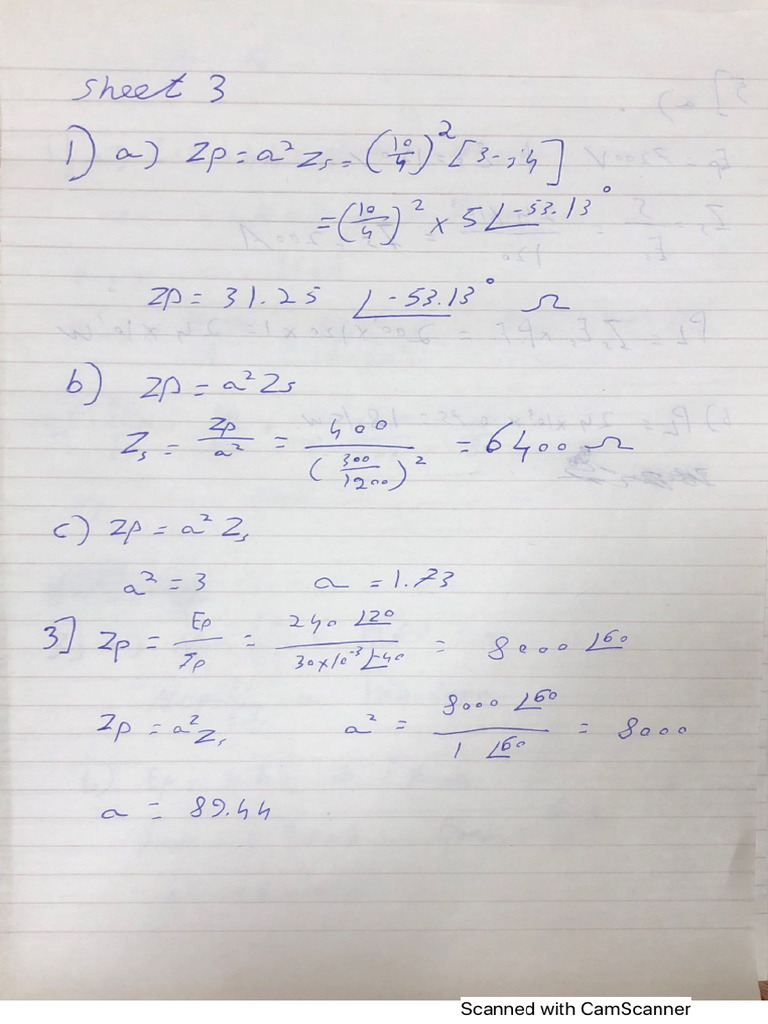 sheet 3
1) a) Zp = a² Zs = (10/4)² [3-j4]
= (10/4)² x 5 ∠-53.13°
Zp = 31.25 ∠-53.13° Ω
b) Zp = a² Zs
Zs = Zp/a² = 400/(300/1200)² = 6400 Ω
c) Zp = a² Zs
a² = 3 a = 1.73
3] Zp = Ep/Ip = 240 ∠20/30x10⁻³ ∠-40 = 8000 ∠60
Zp = a² Zs a² = 8000 ∠60/1 ∠60 = 8000
a = 89.44
Scanned with CamScanner